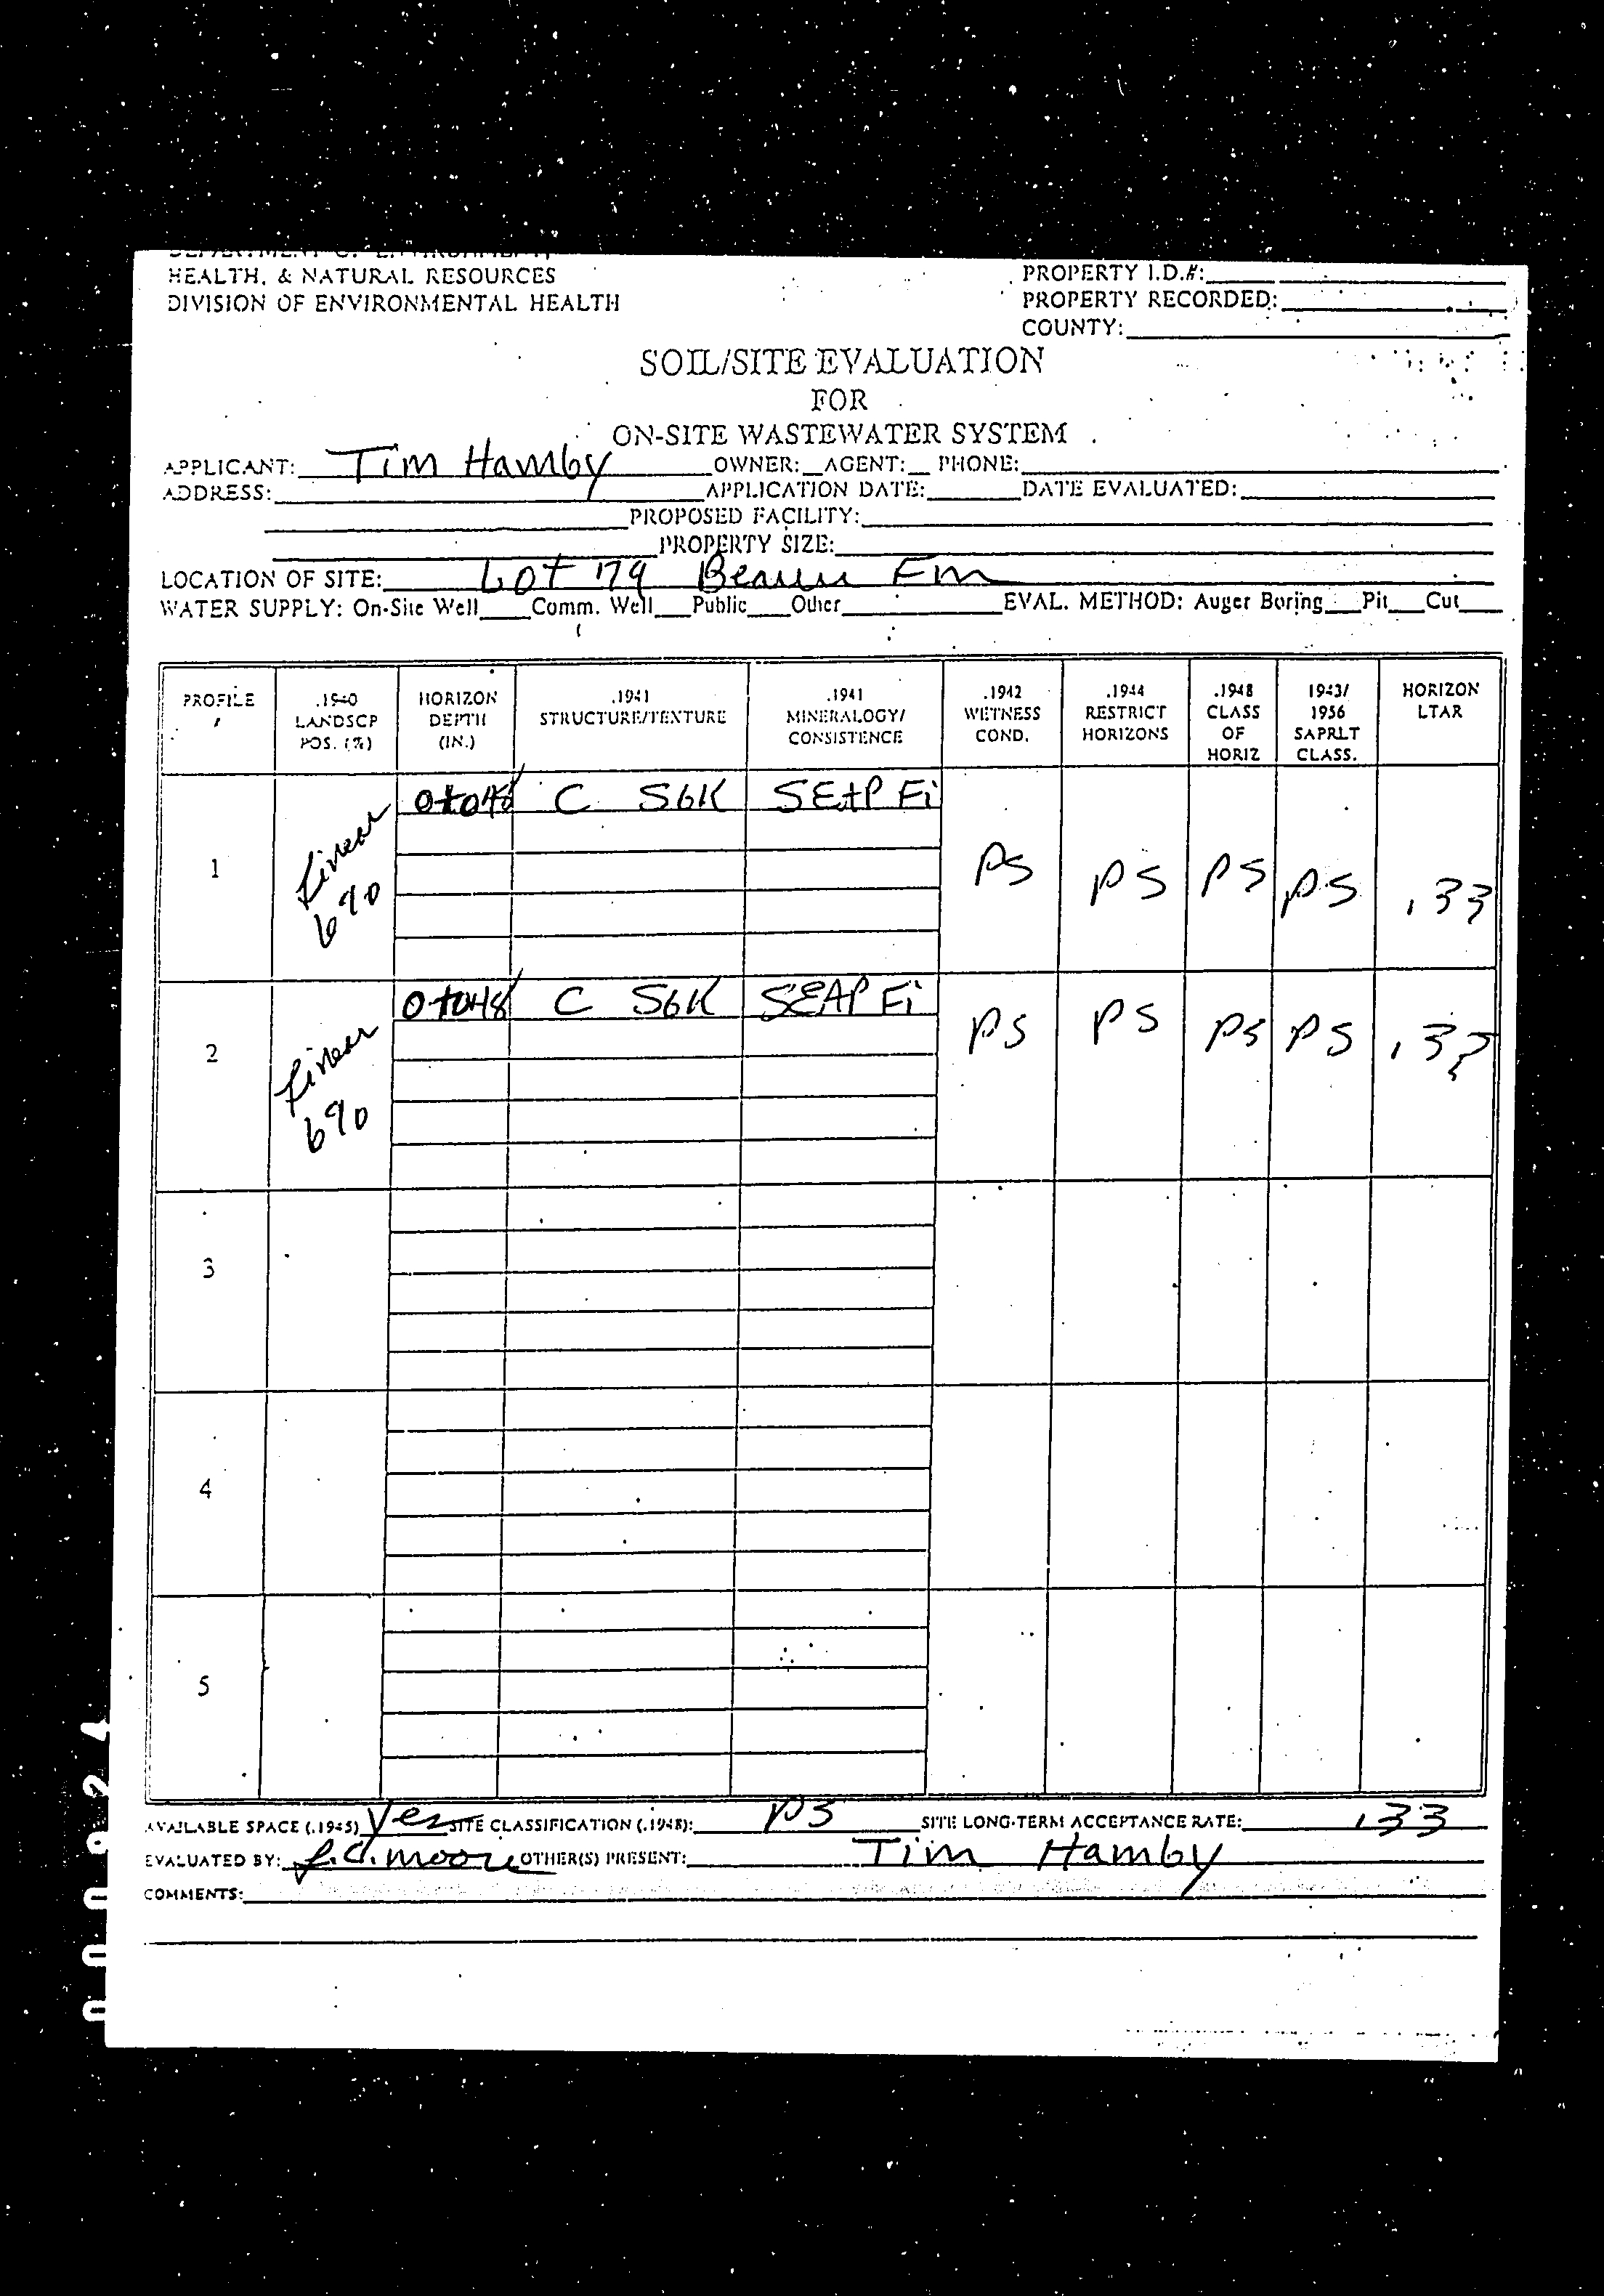 HEALTH, & NATURAL RESOURCES
DIVISION OF ENVIRONMENTAL HEALTH
PROPERTY I.D.#:
PROPERTY RECORDED:
COUNTY:
SOIL/SITE EVALUATION
FOR
ON-SITE WASTEWATER SYSTEM
APPLICANT: Tim Hamby OWNER: AGENT: PHONE:
ADDRESS: APPLICATION DATE: DATE EVALUATED:
PROPOSED FACILITY:
PROPERTY SIZE:
LOCATION OF SITE: Lot 179 Fm
WATER SUPPLY: On-Site Well Comm. Well Public Other EVAL. METHOD: Auger Boring Pit Cut
PROFILE # .1940 LANDSCP POS. (%) HORIZON DEPTH (IN.) .1941 STRUCTURE/TEXTURE .1941 MINERALOGY/ CONSISTENCE .1942 WETNESS COND. .1944 RESTRICT HORIZONS .1948 CLASS OF HORIZ 1943/ 1956 SAPRLT CLASS. HORIZON LTAR
1 Linear 6% 0 to 48 C SBK SEXP Fi PS PS PS PS .33
2 Linear 6% 0 to 48 C SBK SEXP Fi PS PS PS PS .33
3
4
5
AVAILABLE SPACE (.1945) Yes SITE CLASSIFICATION (.1948): PS SITE LONG-TERM ACCEPTANCE RATE: .33
EVALUATED BY: Moore OTHER(S) PRESENT: Tim Hamby
COMMENTS: